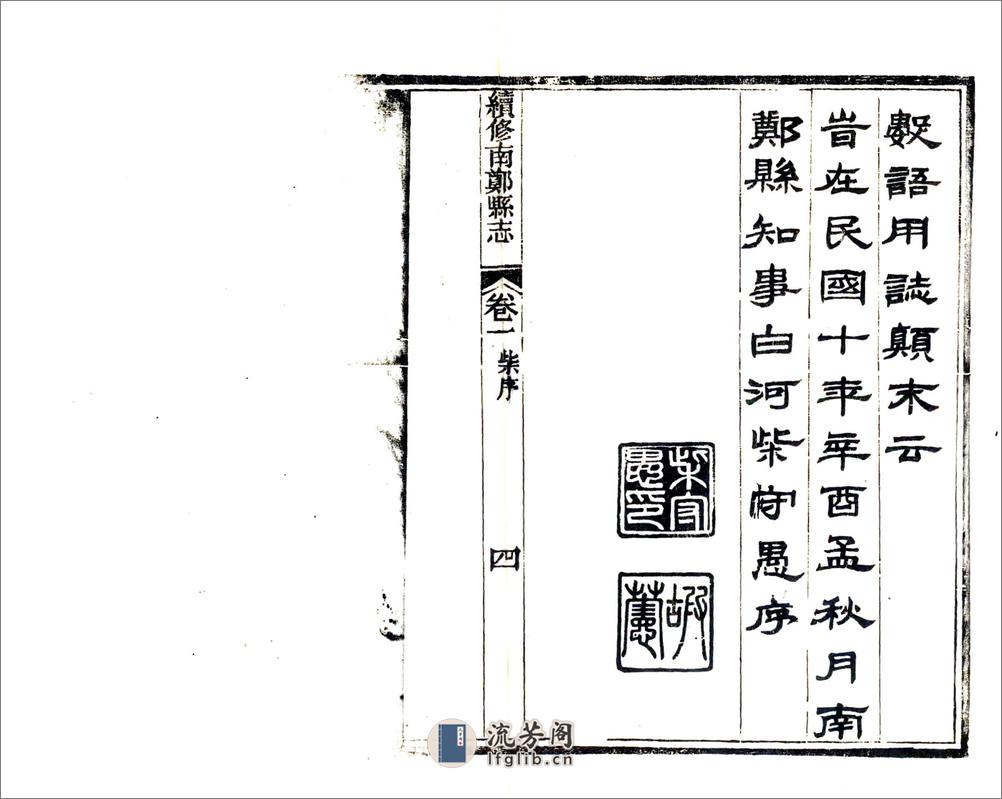 數語用誌顛末云
旹在民國十年辛酉孟秋月南
鄭縣知事白河柴守愚序
柴守愚印
續修南鄭縣志
卷一
柴序
四
流芳阁
lfglib.cn